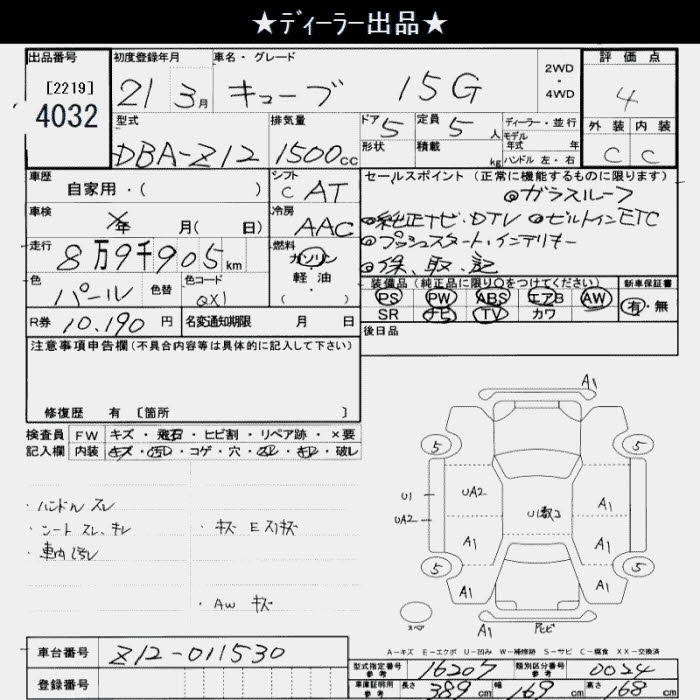 ★ディーラー出品★
出品番号 初度登録年月 車名・グレード 2WD・4WD 評価点
[2219] 4032 21 3月 キューブ 15G 4
型式 排気量 ドア 5 定員 5人 ディーラー・並行 外装 内装
DBA-Z12 1500cc 形状 積載 kg モデル年式 年 C C
ハンドル 左・右
車歴 シフト セールスポイント(正常に機能するものに限ります)
自家用・( ) C AT ◎ガラスルーフ
車検 年 月( 日) 冷房 AAC ◎純正ナビ・DTV ◎ビルトインETC
走行 8万9千905km 燃料 ガソリン・軽油 ( ・ ) ◎プッシュスタート・インテリキー
◎保、取、記
色 パール 色替 色コード QX1 装備品(純正品に限り○をつけてください) 新車保証書
PS PW ABS エアB AW 有・無
R券 10,190円 名変通知期限 月 日 SR ナビ TV カワ
注意事項申告欄(不具合内容等は具体的に記入して下さい) 後日品
修復歴 有 [箇所 ]
検査員記入欄 FW キズ・飛石・ヒビ割・リペア跡・×要
内装 キズ・汚レ・コゲ・穴・スレ・キレ・破レ
・ハンドル スレ
・シート スレ、キレ ・キズ エスリキズ
・車内 汚レ
・AW キズ
A1
5 5
U1 UA2 A1
UA2 A1 A1
5 5
A1 A1
スペア A1
A-キズ E-エクボ U-凹み W-補修跡 S-サビ C-腐食 XX-交換済
車台番号 Z12-011530
登録番号
型式指定番号 参考 16207 類別区分番号 参考 0024
車庫証明用 参考 長さ 389cm 幅 169cm 高さ 168cm